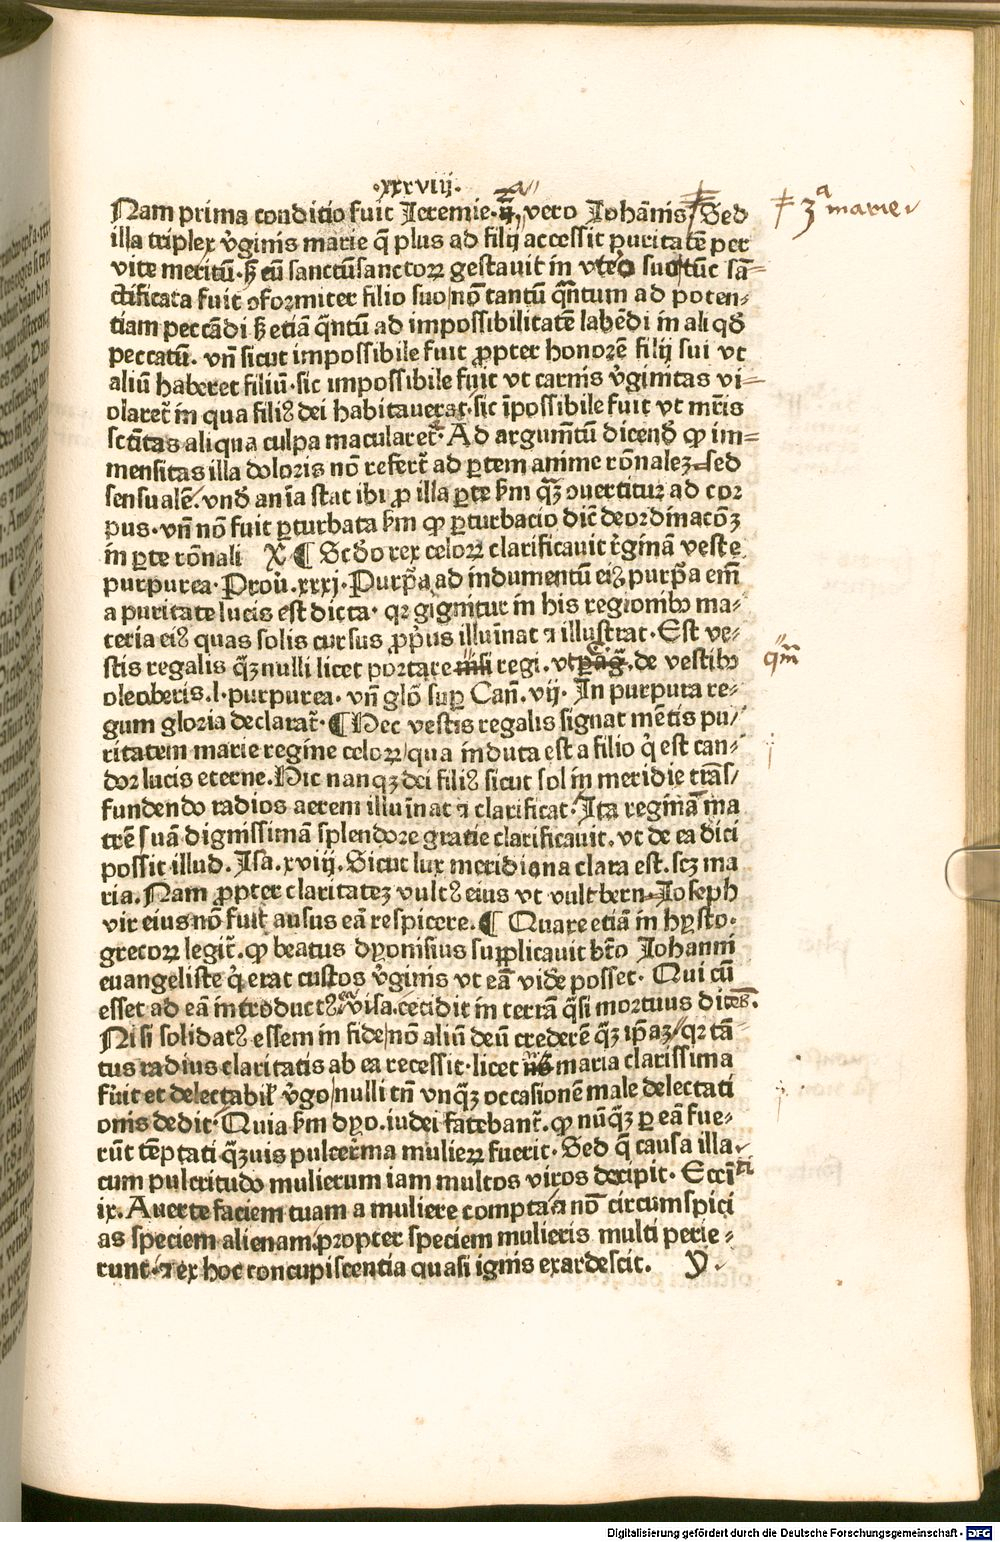 ·xxxviij·
Nam prima conditio fuit Jeremie·ij̄ vero Johānis Sed
≠ 3ª marie
illa triplex v̓ginis marie q̄ plus ad filij accessit puritatē per
vite meritū·ꝫ cū sanctūsanctoꝝ gestauit in vtero suo tūc sā=
ctificata fuit ꝯformiter filio suo|nō tantū qn̄tum ad poten-
tiam peccādi ꝫ etiā qn̄tū ad impossibilitatē labēdi in aliqđ
peccatū. vn̄ sicut impossibile fuit ꝓpter honorē filij sui vt
aliū haberet filiū·sic impossibile fuit vt carnis v̓ginitas vi=
olaret̄ in qua filiꝰ dei habitauerat·sic īpossibile fuit vt mr̄is
sctītas aliqua culpa macularet̄·Ad argumētū dicenđ ꝙ im=
mensitas illa doloris nō refert̄ ad ꝑtem anime rōnalez sed
sensualē. vnđ an̄ia stat ibi ꝓ illa ꝑte ẜm qͣꝫ ꝯuertitur ad cor
pus·vn̄ nō fuit ꝑturbata ẜm ꝙ ꝑturbacio dic̄ deordinacōꝫ
in ꝑte rōnali X ¶ Scđo rex celoꝝ clarificauit r̄ginā veste
purpurea·Prou̓.xxxj·Purpͣa ad indumentū eiꝰ purpͣa em̄
a puritate lucis est dicta· qꝛ gignitur in his regionibꝰ ma-
teria eiꝰ quas solis cursus ꝓpͥus illuīnat ⁊ illustrat·Est ve-
stis regalis qͣꝫ nulli licet portare nisi regi.vt de vestibꝰ
qm̄
oleoberis.l·purpurea· vn̄ glō suꝑ Can̄.vij·In purpura re-
gum gloria declarat̄·¶Hec vestis regalis signat mētis pu/
ritatem marie regine celoꝝ/qua induta est a filio qͥ est can-
dor lucis eterne.Hic nanqꝫ dei filiꝰ sicut sol in meridie trās/
fundendo radios aerem illuīnat ⁊ clarificat·Ita reginā ma
trē suā dignissimā splendore gratie clarificauit.vt de ea dici
possit illud.Isa.xviij.Sicut lux meridiana clara est.scꝫ ma
ria.Nam ꝓpter claritatez vultꝰ eius vt vult bern·Ioseph
vir eius nō fuit ausus eā respicere.¶ Quare etiā in hysto·
grecoꝝ legit̄.ꝙ beatus dyonisius supplicauit bt̄o Johanni
euangeliste qͥ erat custos v̓ginis vt eā vidē posset· Qui cū
esset ad eā introductꝰ visa.cecidit in terrā qͣsi mortuus dicēs.
Nisi solidatꝰ essem in fide|nō aliū deū crederē qͣꝫ ip̄aꝫ/qꝛ tā-
tus radius claritatis ab ea recessit·licet maria clarissima
fu̓it et delectabil̓ v̓go|nulli tn̄ vnqͣꝫ occasionē male delectati
onis dedit·Quia ẜm dyo.iudei fatebant̄.ꝙ nūqͣꝫ ꝑ eā fue-
rūt tēptati qͣꝫuis pulcerͥma mulieꝝ fuerit·Sed q̄ causa illa
cum pulcritudo mulierum iam multos viros decipit·Eccīti
ix.Auerte faciem tuam a muliere compta ⁊ nō circumspici
as speciem alienam.propter speciem mulieris multi perie-
runt·⁊ ex hoc concupiscentia quasi ignis exardescit. Y
Digitalisierung gefördert durch die Deutsche Forschungsgemeinschaft - DFG